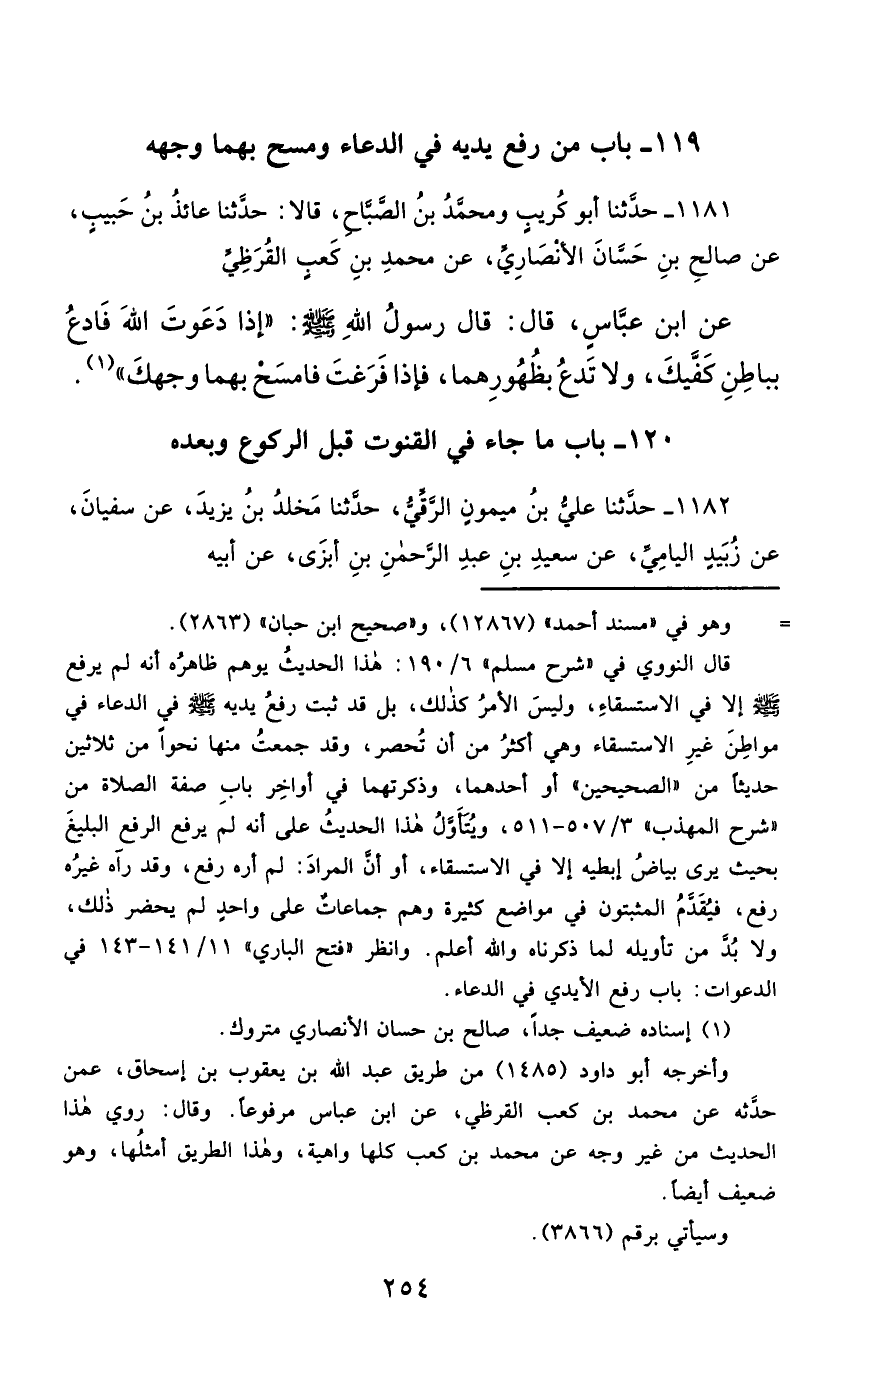 ١١٩ـ باب من رفع يديه في الدعاء ومسح بهما وجهه
١١٨١ـ حدَّثنا أبو كُريبٍ ومحمَّدُ بنُ الصَّبَّاحِ، قالا: حدَّثنا عائذُ بنُ حَبيبٍ،
عن صالحِ بنِ حَسَّانَ الأنْصَارِيِّ، عن محمدِ بنِ كَعبٍ القُرَظِيِّ
عن ابن عبَّاسٍ، قال: قال رسولُ اللهِ ﷺ: «إذا دَعَوتَ اللهَ فَادعُ
بباطِنِ كَفَّيكَ، ولا تَدعُ بظُهُورِهما، فإذا فَرَغتَ فامسَحْ بهما وجهكَ»(١).
١٢٠ـ باب ما جاء في القنوت قبل الركوع وبعده
١١٨٢ـ حدَّثنا عليُّ بنُ ميمونٍ الرَّقِّيُّ، حدَّثنا مَخلدُ بنُ يزيدَ، عن سفيانَ،
عن زُبَيدٍ اليامِيِّ، عن سعيدِ بنِ عبدِ الرَّحمٰنِ بنِ أبزَى، عن أبيه
= وهو في «مسند أحمد» (١٢٨٦٧)، و«صحيح ابن حبان» (٢٨٦٣).
قال النووي في «شرح مسلم» ٦/ ١٩٠: هٰذا الحديثُ يوهم ظاهرُه أنه لم يرفع
ﷺ إلا في الاستسقاءِ، وليسَ الأمرُ كذٰلك، بل قد ثبت رفعُ يديه ﷺ في الدعاء في
مواطِنَ غيرِ الاستسقاء وهي أكثرُ من أن تُحصر، وقد جمعتُ منها نحواً من ثلاثين
حديثاً من «الصحيحين» أو أحدهما، وذكرتهما في أواخِر بابِ صفة الصلاة من
«شرح المهذب» ٣/ ٥٠٧-٥١١، ويُتَأوَّلُ هٰذا الحديثُ على أنه لم يرفع الرفع البليغَ
بحيث يرى بياضُ إبطيه إلا في الاستسقاء، أو أنَّ المرادَ: لم أره رفع، وقد رآه غيرُه
رفع، فيُقَدَّمُ المثبتون في مواضع كثيرة وهم جماعاتٌ على واحدٍ لم يحضر ذٰلك،
ولا بُدَّ من تأويله لما ذكرناه والله أعلم. وانظر «فتح الباري» ١١/ ١٤١-١٤٣ في
الدعوات: باب رفع الأيدي في الدعاء.
(١) إسناده ضعيف جداً، صالح بن حسان الأنصاري متروك.
وأخرجه أبو داود (١٤٨٥) من طريق عبد الله بن يعقوب بن إسحاق، عمن
حدَّثه عن محمد بن كعب القرظي، عن ابن عباس مرفوعاً. وقال: روي هٰذا
الحديث من غير وجه عن محمد بن كعب كلها واهية، وهٰذا الطريق أمثلُها، وهو
ضعيف أيضاً.
وسيأتي برقم (٣٨٦٦).
٢٥٤